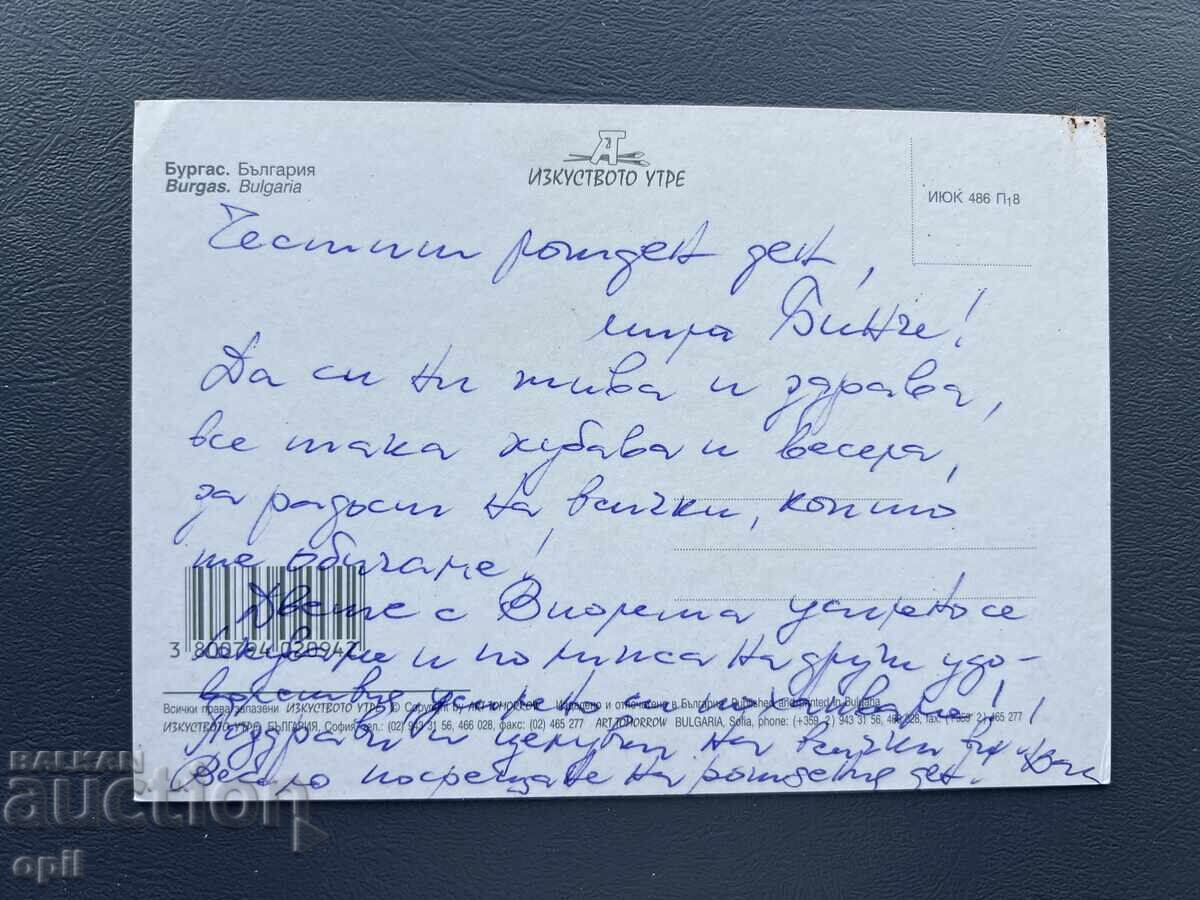 Бургас. България
Burgas. Bulgaria
ИЗКУСТВОТО УТРЕ
ИЮК 486 П18
Честит рожден ден,
мила Бинче!
Да си ни жива и здрава,
все така хубава и весела,
за радост на всички, които
те обичаме!
Двете с Виолета успешно се
и по липса на други удо-
волствия успешно си почиваме!
3 800794 020942
Всички права запазени ИЗКУСТВОТО УТРЕ © Copyright by ART TOMORROW Издадено и отпечатано в България Published and printed in Bulgaria
ИЗКУСТВОТО УТРЕ БЪЛГАРИЯ, София, тел.: (02) 943 31 56, 466 028, факс: (02) 465 277 ART TOMORROW BULGARIA, Sofia, phone: (+359 2) 943 31 56, 466 028, fax: (+359 2) 465 277
Поздрави и целувки на всички
Весело посрещане на рождения ден!
BALKAN
auction
opil